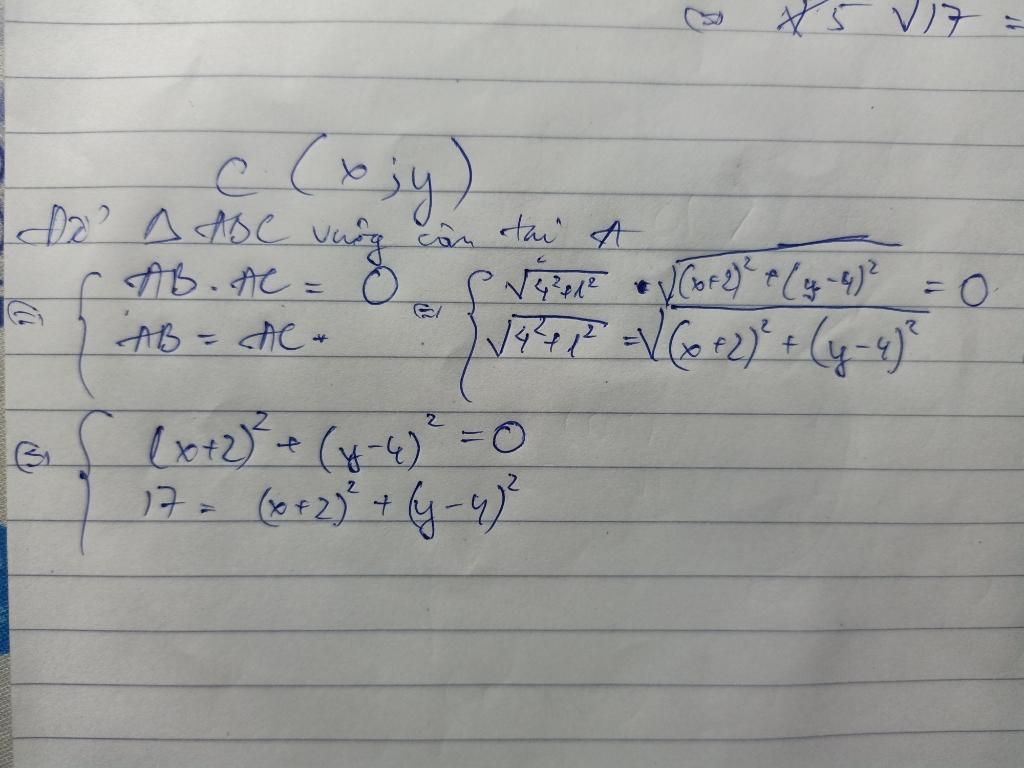 ⇔ x 5 √17 =
C (x; y)
Để Δ ABC vuông cân tại A
⇔ { AB . AC = 0 ⇔ { √4²+1² . √(x+2)² + (y-4)² = 0
AB = AC √4²+1² = √(x+2)² + (y-4)²
⇔ { (x+2)² + (y-4)² = 0
17 = (x+2)² + (y-4)²